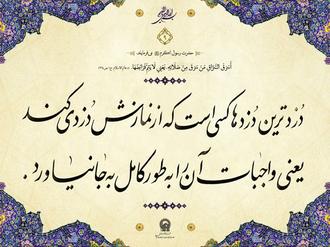 حضرت رسول اکرم (ص) می‌فرماید:
أَسْرَقُ السُّرَّاقِ مَنْ سَرَقَ مِنْ صَلَاتِهِ، يَعْنِي لَا يُتِمُّ فَرَائِضَهَا.
دُزدترین دُزدها کسی است که از نمازش دُزدی کند
یعنی واجبات آن را به طور کامل به جا نیاورد.